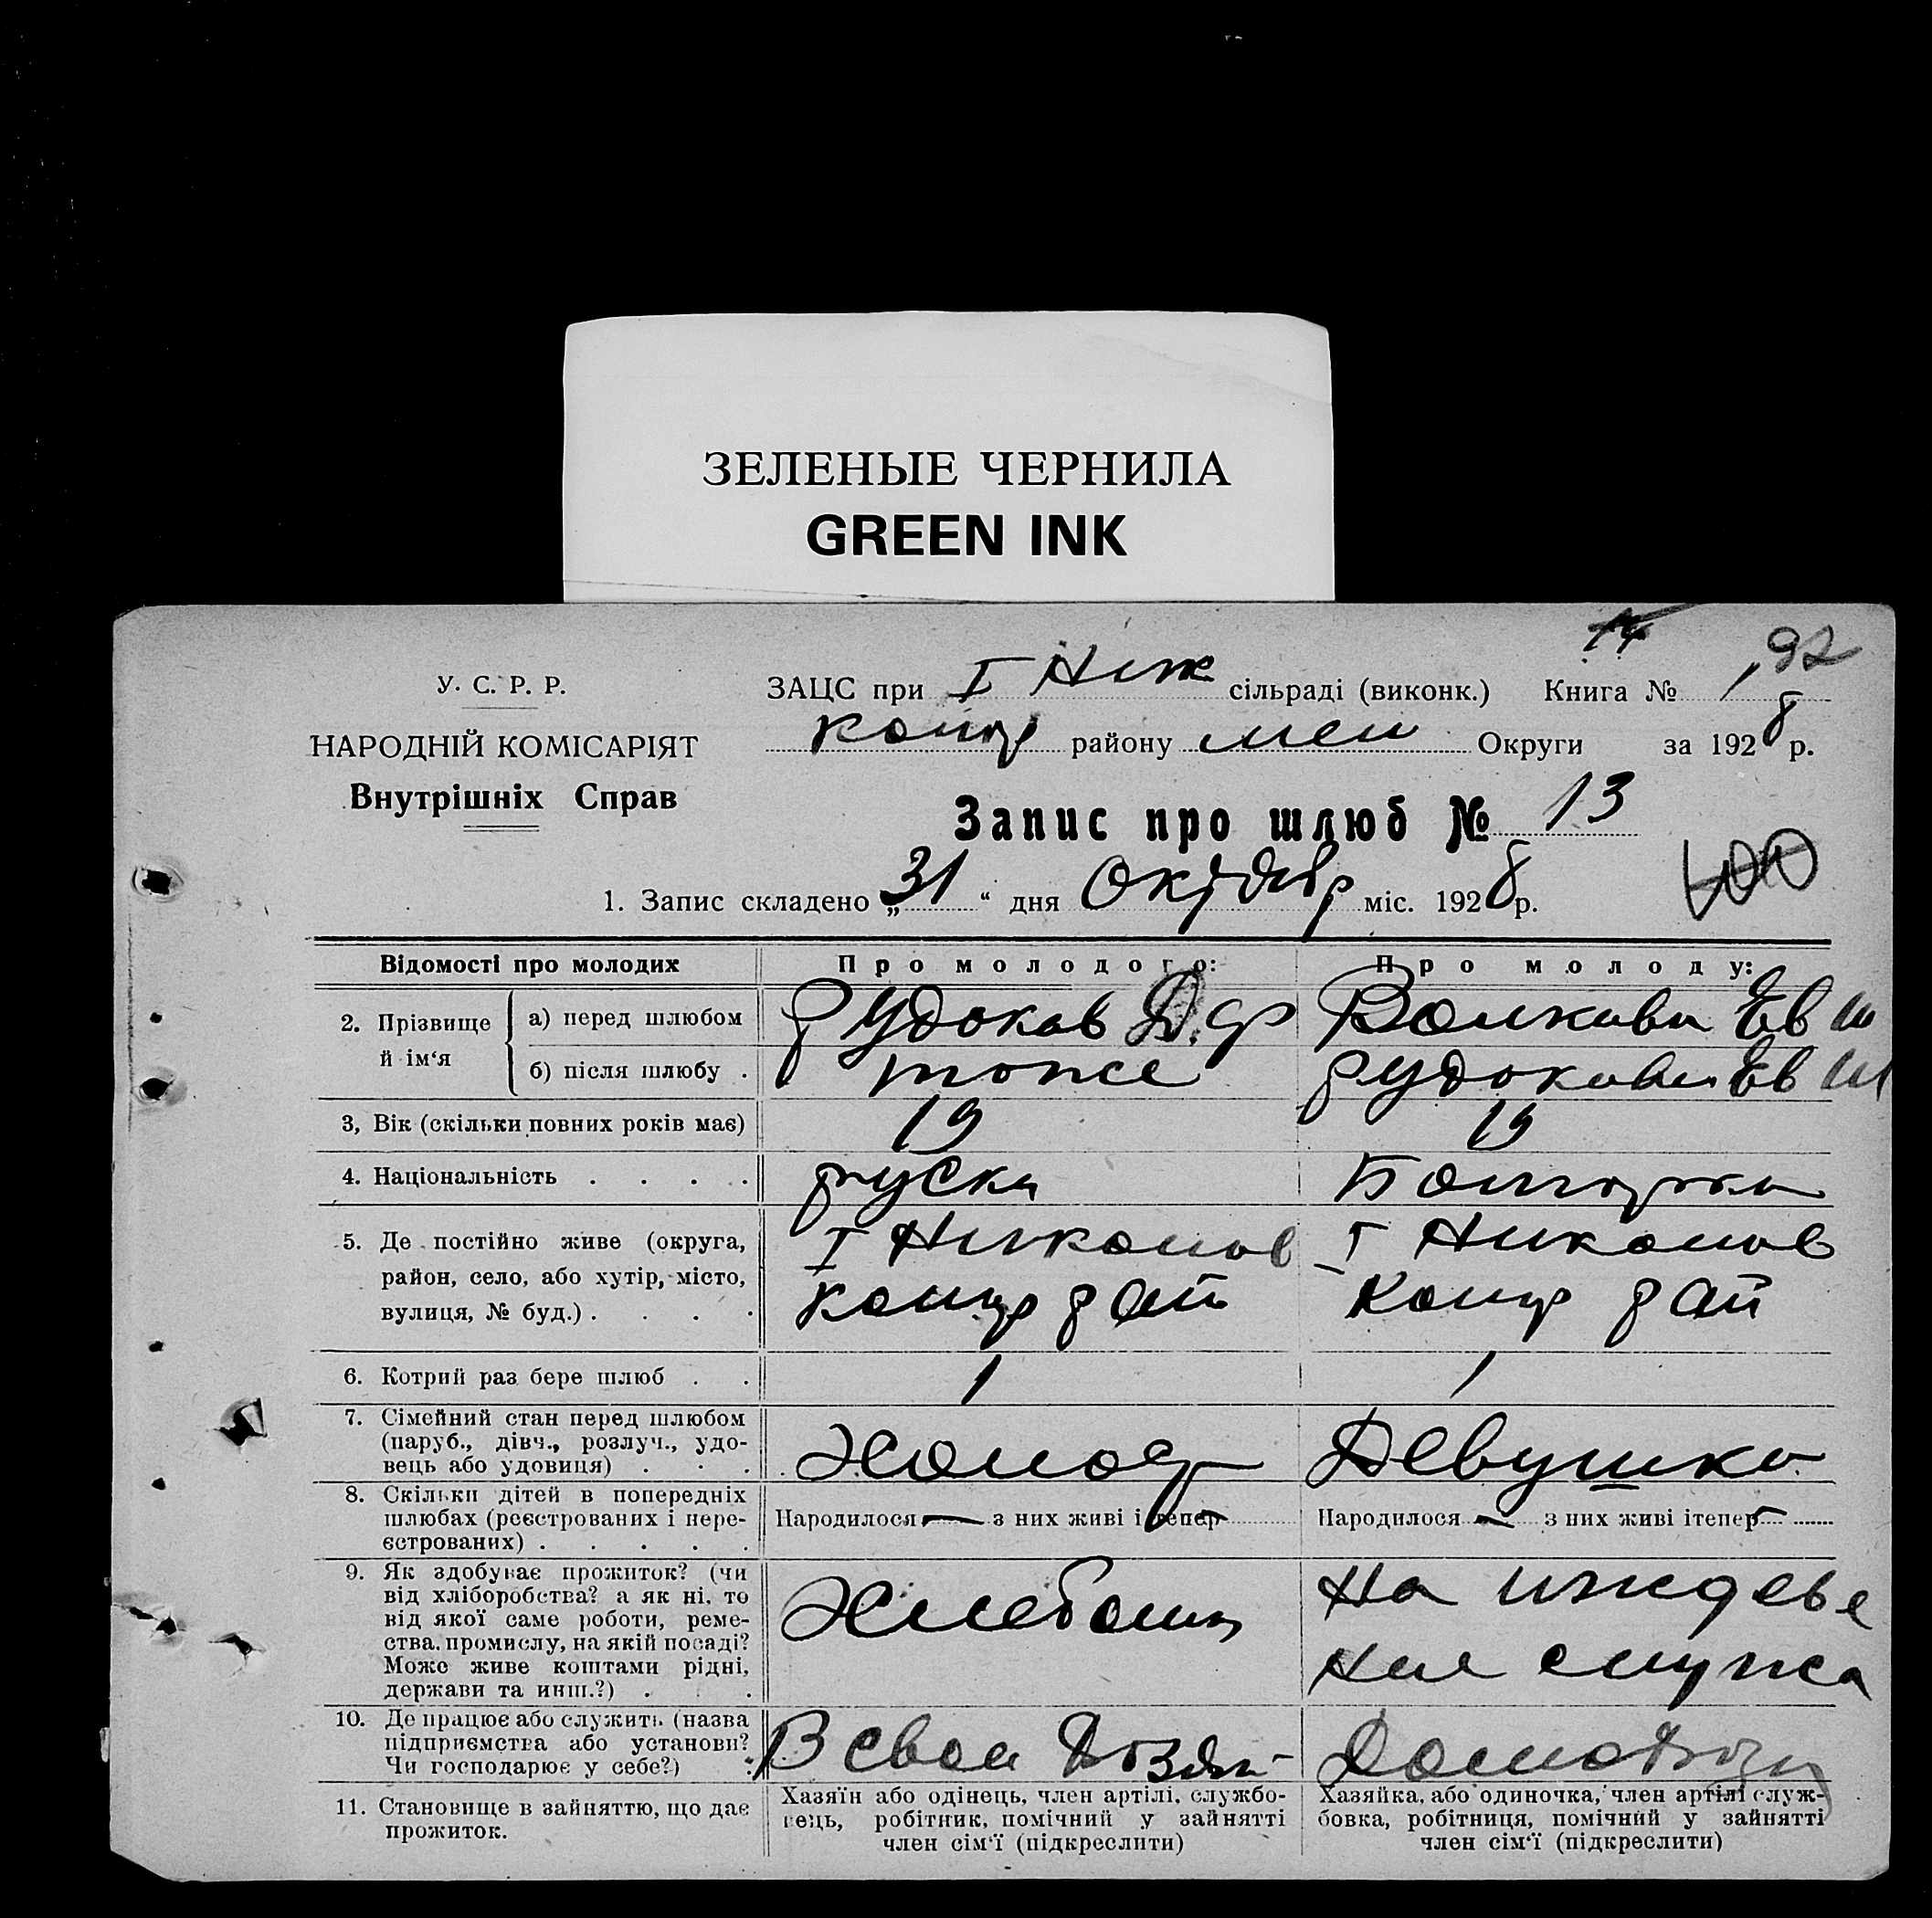 ЗЕЛЕНЫЕ ЧЕРНИЛА
GREEN INK
92
У. С. Р. Р.
ЗАЦС при I Ник сільраді (виконк.) Книга №
НАРОДНІЙ КОМІСАРІЯТ
Внутрішніх Справ
району Округи за 1928 р.
Запис про шлюб № 13
400
1. Запис складено „31“ дня Октябр міс. 1928 р.
Відомості про молодих
Про молодого:
Про молоду:
2. Прізвище й ім‘я
а) перед шлюбом
Рудоков Д. Ф
Волкова Ев
б) після шлюбу .
тоже
Рудокова Ев
3, Вік (скільки повних років має)
19
19
4. Національність . . . .
руска
Болгарка
5. Де постійно живе (округа,
район, село, або хутір, місто,
вулиця, № буд.) . . . .
I Николаев
рай
I Николаев
рай
6. Котрий раз бере шлюб . .
1
1
7. Сімейний стан перед шлюбом
(паруб., дівч., розлуч., удо-
вець або удовиця) . . .
Холост
Девушка
8. Скільки дітей в попередніх
шлюбах (реєстрованих і нере-
єстрованих) . . . . .
Народилося — з них живі і тепер
Народилося — з них живі і тепер
9. Як здобуває прожиток? (чи
від хліборобства? а як ні, то
від якої саме роботи, реме-
ства, промислу, на якій посаді?
Може живе коштами рідні,
держави та инш.?) . .
Хлебопаш
На иждеве
мужа
10. Де працює або служить (назва
підприємства або установи?
Чи господарює у себе?) :
В свом хозяй
Домохозя
11. Становище в зайняттю, що дає
прожиток.
Хазяїн або одінець, член артілі, службо-
вець, робітник, помічний у зайнятті
член сім‘ї (підкреслити)
Хазяйка, або одиночка, член артілі служ-
бовка, робітниця, помічний у зайнятті
член сім‘ї (підкреслити)